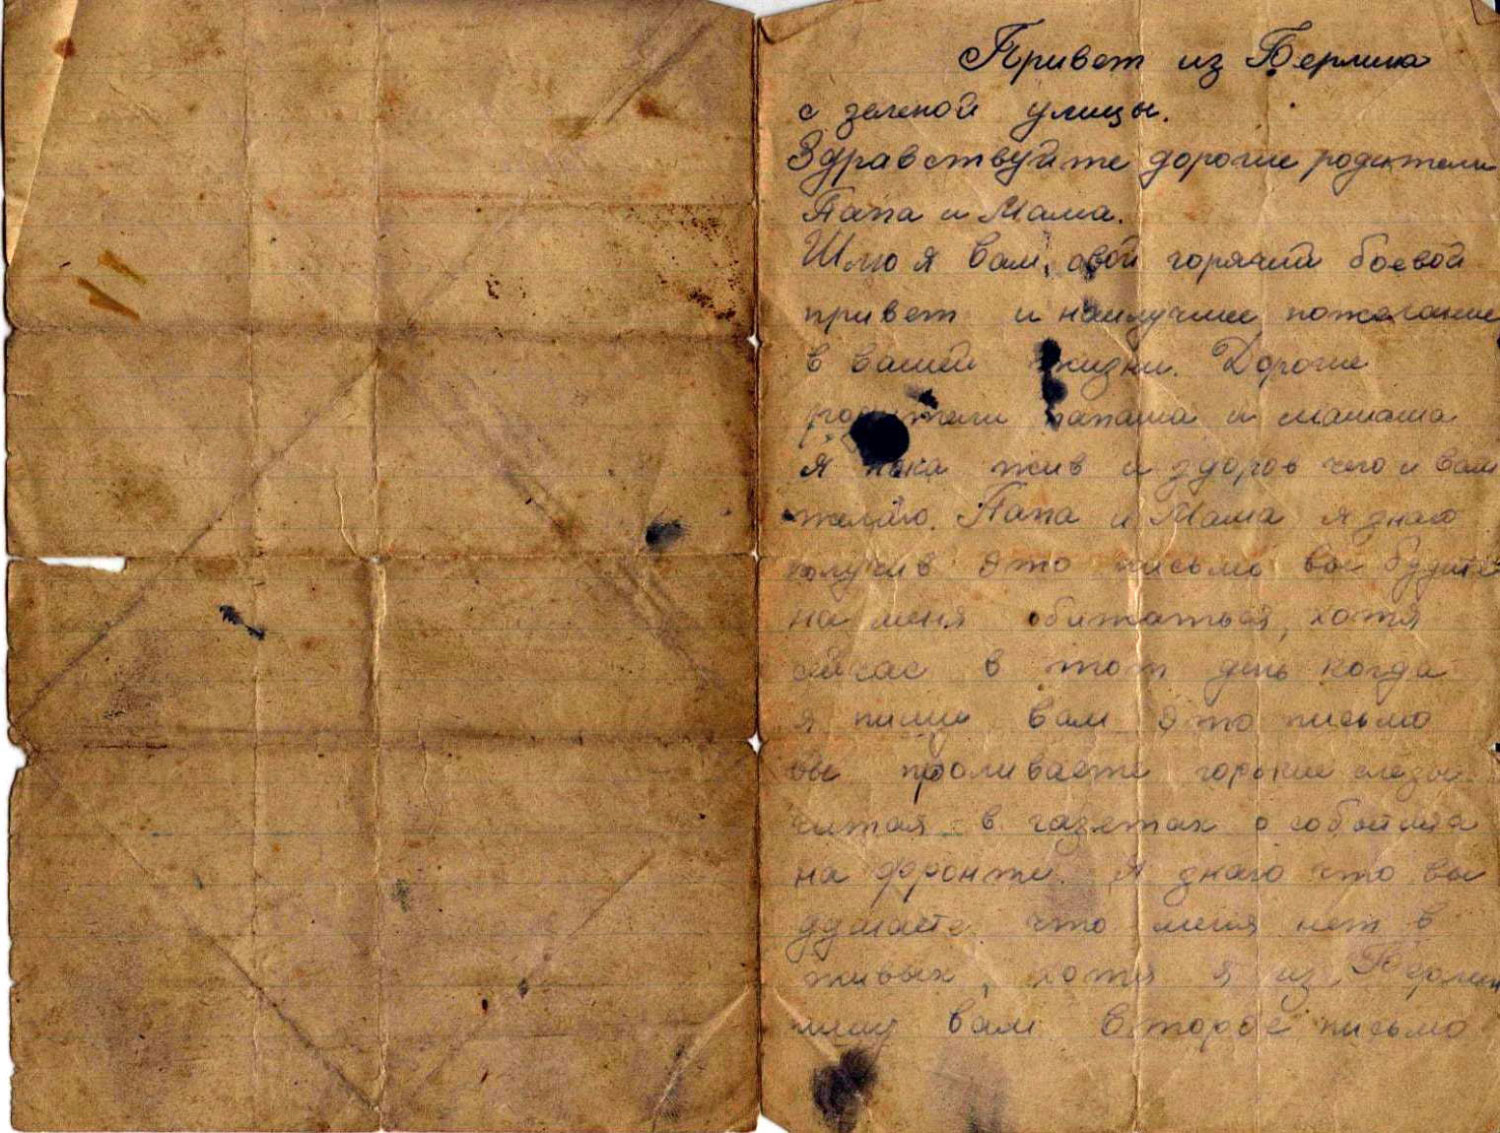 Привет из Берлина
с зеленой улицы.
Здравствуйте дорогие родители
Папа и Мама.
Шлю я вам, свой горячий боевой
привет и наилучшие пожелание
в вашей жизни. Дорогие
родители папаша и мамаша
Я пока жив и здоров чего и вам
желаю. Папа и Мама я знаю
получив это письмо вы будите
на меня обижаться, хотя
сейчас в тот день когда
я пишу вам это письмо
вы проливаете горькие слезы
читая в газетах о событиях
на фронте. Я знаю что вы
думаете что меня нет в
живых, хотя я из Берлина
шлю вам второе письмо